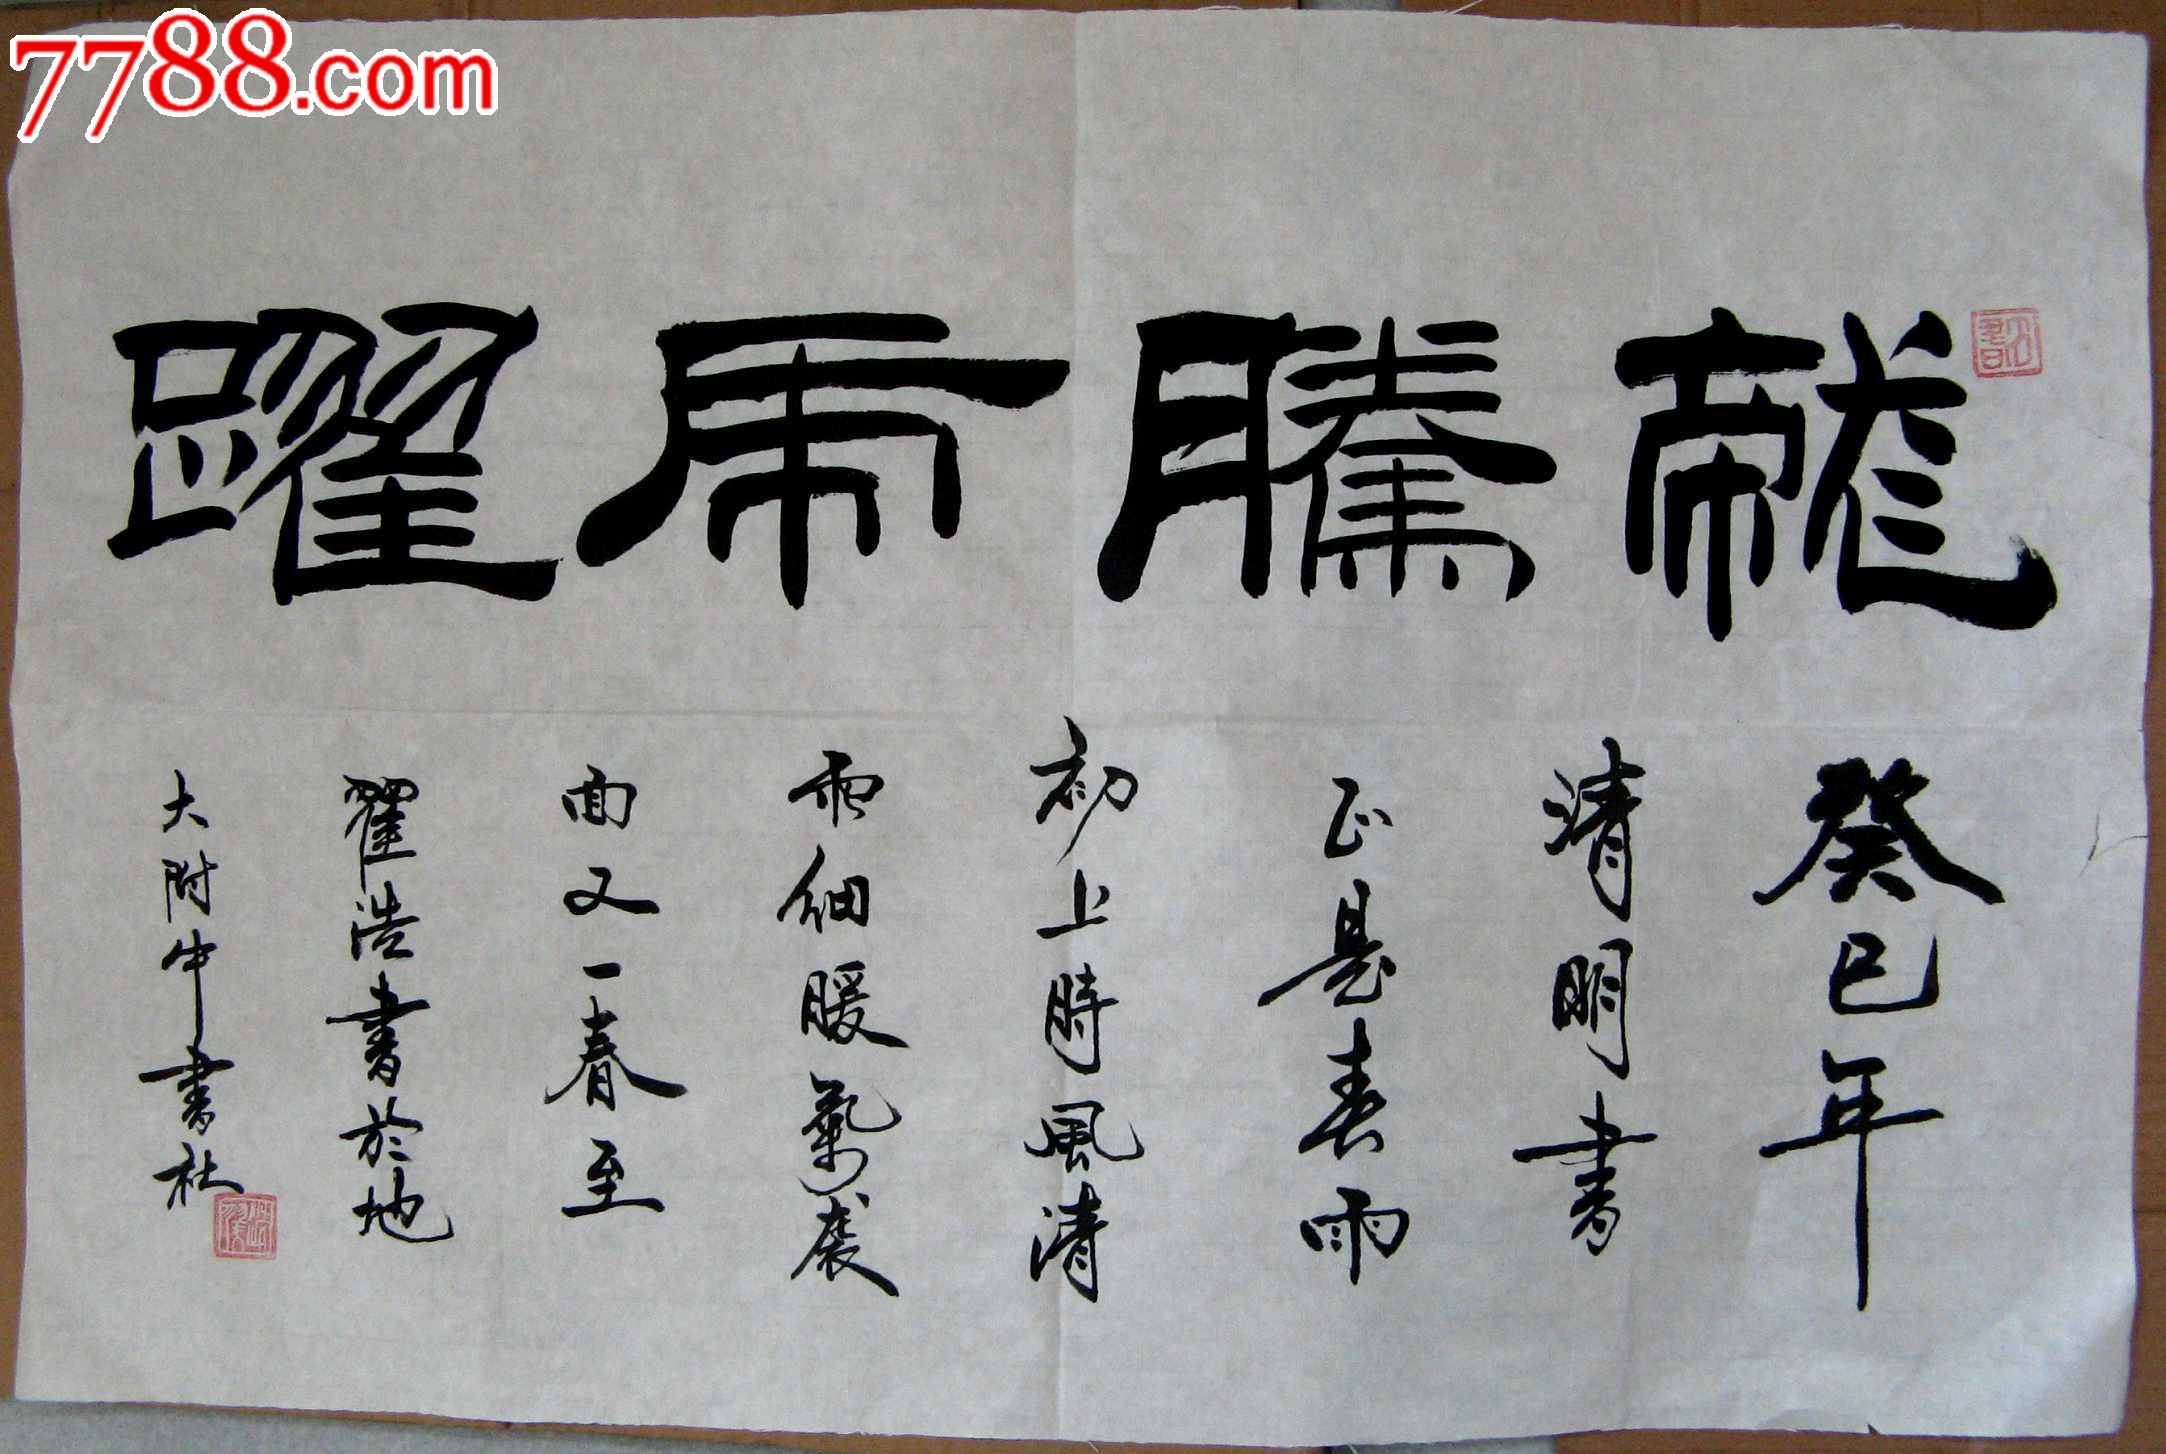 7788.com
龍騰虎躍
癸巳年
清明書
正是春雨
初上時風清
雨細暖氣袭
面又一春至
翟浩書於地
大附中書社